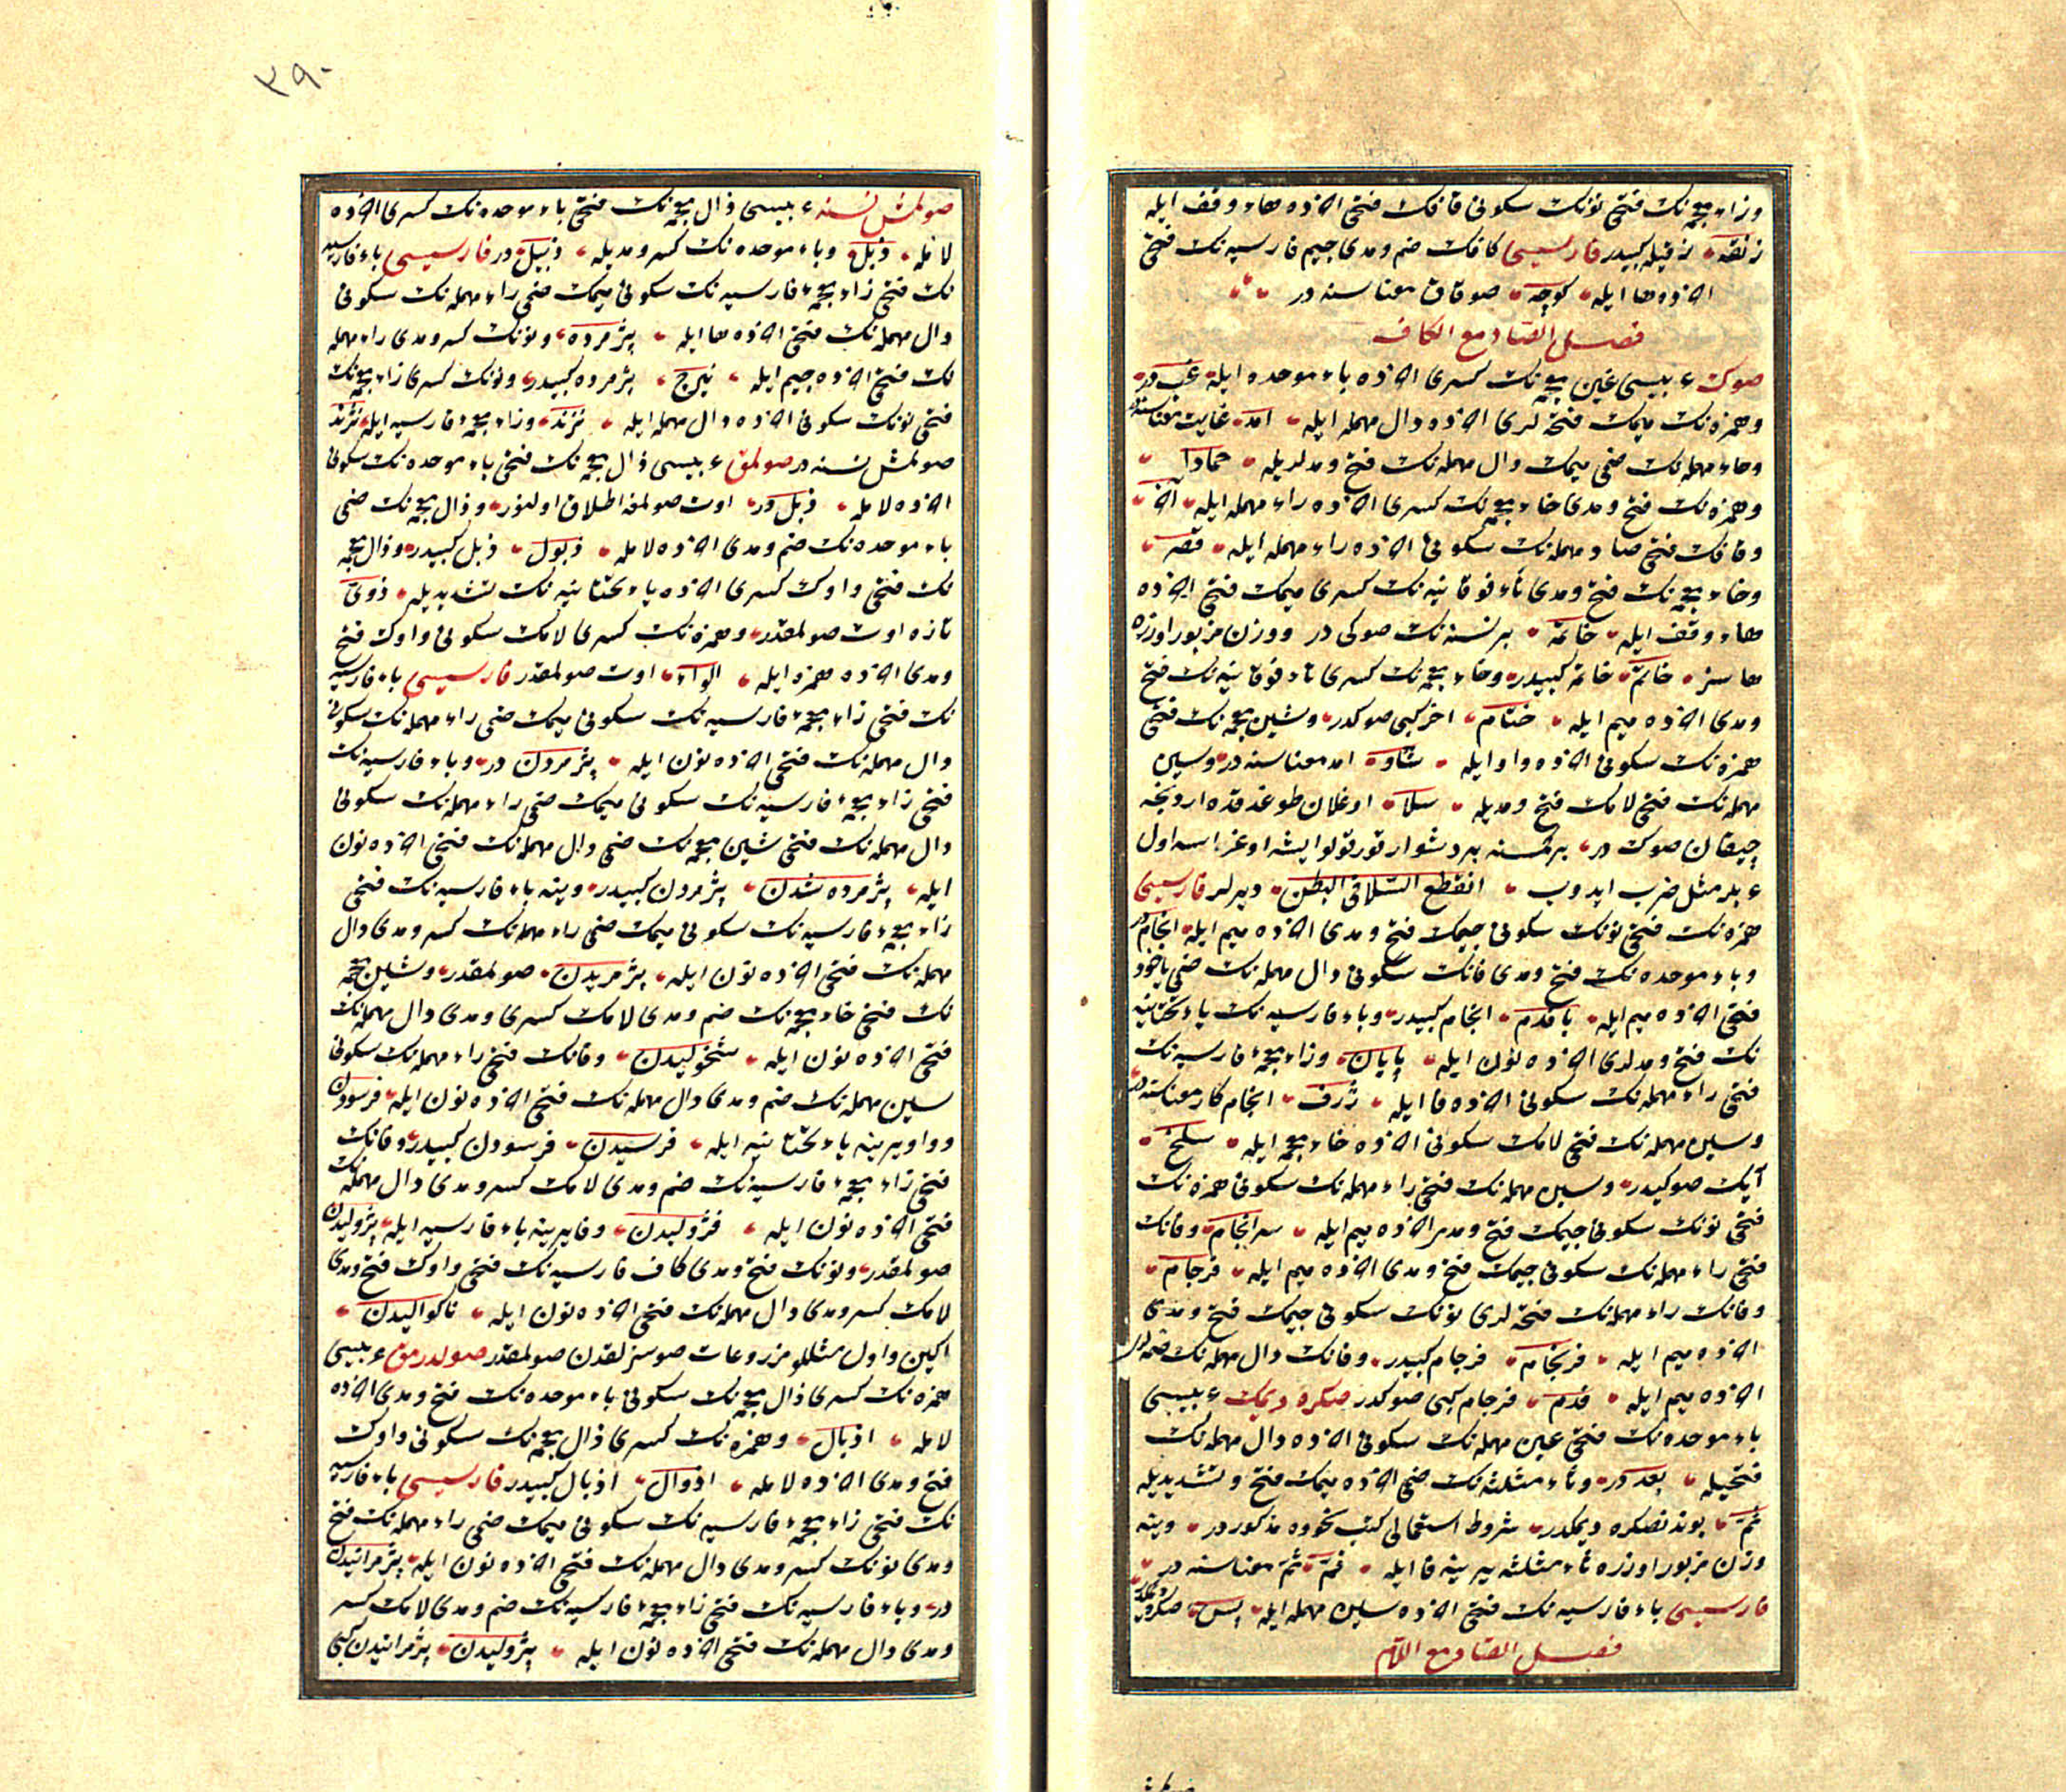 وزاء معجمه‌نك فتحى نونك سكونى قافك فتحى آخرده هاء وقف ايله
زنقه زقيله كبيدر فارسيسى كافك ضم ومدى جيم فارسيه‌نك فتحى
آخرده ها ايله كوچه صوقاق معناسنه در
فصل الصاد مع الكاف
صوك عربيسى غين معجمه‌نك كسرى آخرده باء موحده ايله غب در
وهمزه‌نك ميمك فتحه‌لرى آخرده دال مهمله ايله امد غايت معناسنه
وحاء مهمله‌نك ضمى ميمك دال مهمله‌نك فتح ومدلريله حمادا
وهمزه‌نك فتح ومدى خاء معجمه‌نك كسرى آخرده راء مهمله ايله آخر
وقافك فتحى صاد مهمله‌نك سكونى آخرده راء مهمله ايله قصر
وخاء معجمه‌نك فتح ومدى تاء فوقانيه‌نك كسرى ميمك فتحى آخرده
هاء وقف ايله خاتمه بر نسنه‌نك صوكى در ووزن مزبور اوزره
هاسز خاتم خاتمه كبيدر وخاء معجمه‌نك كسرى تاء فوقانيه‌نك فتح
ومدى آخرده ميم ايله ختام آخر كبى صوكدر وشين معجمه‌نك فتحى
همزه‌نك سكونى آخرده واو ايله شأو امد معناسنه در وسين
مهمله‌نك فتحى لامك فتح ومديله سلا اوغلان طوغدقده اردنجه
چيقان صوك در بر كمسنه بر دشوار تورتولو ايشه اوغراسه اول
عربلر مثل ضرب ايدوب انقطع السلا فى البطن ديرلر فارسيسى
همزه‌نك فتحى نونك سكونى جيمك فتح ومدى آخرده ميم ايله انجام در
وباء موحده‌نك فتح ومدى فانك سكونى دال مهمله‌نك ضمى ياخود
فتحى آخرده ميم ايله بافدم انجام كبيدر وباء فارسيه‌نك ياء تحتانيه
نك فتح ومدلرى آخرده نون ايله پايان وزاء معجمهء فارسيه‌نك
فتحى راء مهمله‌نك سكونى آخرده فا ايله ژرف انجام كار معناسنه در
وسين مهمله‌نك فتحى لامك سكونى آخرده خاء معجمه ايله سلخ
آيك صوكيدر وسين مهمله‌نك فتحى راء مهمله‌نك سكونى همزه‌نك
فتحى نونك سكونى جيمك فتح ومدى آخرده ميم ايله سرانجام وفانك
فتحى راء مهمله‌نك سكونى جيمك فتح ومدى آخرده ميم ايله فرجام
وفانك راء مهمله‌نك فتحه‌لرى نونك سكونى جيمك فتح ومدى
آخرده ميم ايله فرنجام فرجام كبيدر وفانك دال مهمله‌نك ضمه‌لرى
آخرده ميم ايله فدم فرجام كبى صوكدر صكره ديمك عربيسى
باء موحده‌نك فتحى عين مهمله‌نك سكونى آخرده دال مهمله‌نك
فتحيله بعد در وثاء مثلثه‌نك ضمى آخرده ميمك فتح وتشديديله
ثم بوندنصكره ديمكدر شروط استعمالى كتب نحوده مذكوردر وينه
وزن مزبور اوزره ثاء مثلثه يرينه فا ايله فم ثم معناسنه در
فارسيسى باء فارسيه‌نك فتحى آخرده سين مهمله ايله پس صكره ديمكدر
فصل الصاد مع اللام
٣٩٠
صولمش نسنه عربيسى ذال معجمه‌نك فتحى باء موحده‌نك كسرى آخرده
لامله ذبل وباء موحده‌نك كسر ومديله ذبيل در فارسيسى باء فارسيه
نك فتحى زاء معجمهء فارسيه‌نك سكونى ميمك ضمى راء مهمله‌نك سكونى
دال مهمله‌نك فتحى آخرده ها ايله پژمرده ونونك كسر ومدى راء مهمله
نك فتحى آخرده جيم ايله نيرج پژمرده كبيدر ونونك كسرى زاء معجمه‌نك
فتحى نونك سكونى آخرده دال مهمله ايله نزند وزاء معجمهء فارسيه ايله نژند
صولمش نسنه در صولمق عربيسى ذال معجمه‌نك فتحى باء موحده‌نك سكونى
آخرده لامله ذبل در اوت صولمغه اطلاق اولنور وذال معجمه‌نك ضمى
باء موحده‌نك ضم ومدى آخرده لامله ذبول ذبل كبيدر وذال معجمه
نك فتحى واوك كسرى آخرده ياء تحتانيه‌نك تشديديله ذوى
تازه اوت صولمقدر وهمزه‌نك كسرى لامك سكونى واوك فتح
ومدى آخرده همزه ايله الواء اوت صولمقدر فارسيسى باء فارسيه
نك فتحى زاء معجمهء فارسيه‌نك سكونى ميمك ضمى راء مهمله‌نك سكونى
دال مهمله‌نك فتحى آخرده نون ايله پژمردن در وباء فارسيه‌نك
فتحى زاء معجمهء فارسيه‌نك سكونى ميمك ضمى راء مهمله‌نك سكونى
دال مهمله‌نك فتحى شين معجمه‌نك ضمى دال مهمله‌نك فتحى آخرده نون
ايله پژمرده شدن پژمردن كبيدر وينه باء فارسيه‌نك فتحى
زاء معجمهء فارسيه‌نك سكونى ميمك ضمى راء مهمله‌نك كسر ومدى دال
مهمله‌نك فتحى آخرده نون ايله پژمريدن صولمقدر وشين معجمه
نك فتحى خاء معجمه‌نك ضم ومدى لامك كسرى ومدى دال مهمله‌نك
فتحى آخرده نون ايله شخوليدن وفانك فتحى راء مهمله‌نك سكونى
سين مهمله‌نك ضم ومدى دال مهمله‌نك فتحى آخرده نون ايله فرسودن
وواو يرينه ياء تحتانيه ايله فرسيدن فرسودن كبيدر وفانك
فتحى زاء معجمهء فارسيه‌نك ضم ومدى لامك كسر ومدى دال مهمله‌نك
فتحى آخرده نون ايله فژوليدن وفا يرينه باء فارسيه ايله پژوليدن
صولمقدر ونونك فتح ومدى كاف فارسيه‌نك فتحى واوك فتح ومدى
لامك كسر ومدى دال مهمله‌نك فتحى آخرده نون ايله ناكواليدن
اكين واول مثللو مزروعات صوسزلقدن صولمقدر صولدرمق عربيسى
همزه‌نك كسرى ذال معجمه‌نك سكونى باء موحده‌نك فتح ومدى آخرده
لامله اذبال وهمزه‌نك كسرى ذال معجمه‌نك سكونى واوك
فتح ومدى آخرده لامله اذوال اذبال كبيدر فارسيسى باء فارسيه
نك فتحى زاء معجمهء فارسيه‌نك سكونى ميمك ضمى راء مهمله‌نك فتح
ومدى نونك كسر ومدى دال مهمله‌نك فتحى آخرده نون ايله پژمرانيدن
در وباء فارسيه‌نك فتحى زاء معجمهء فارسيه‌نك ضم ومدى لامك كسر
ومدى دال مهمله‌نك فتحى آخرده نون ايله پژوليدن پژمرانيدن كبى